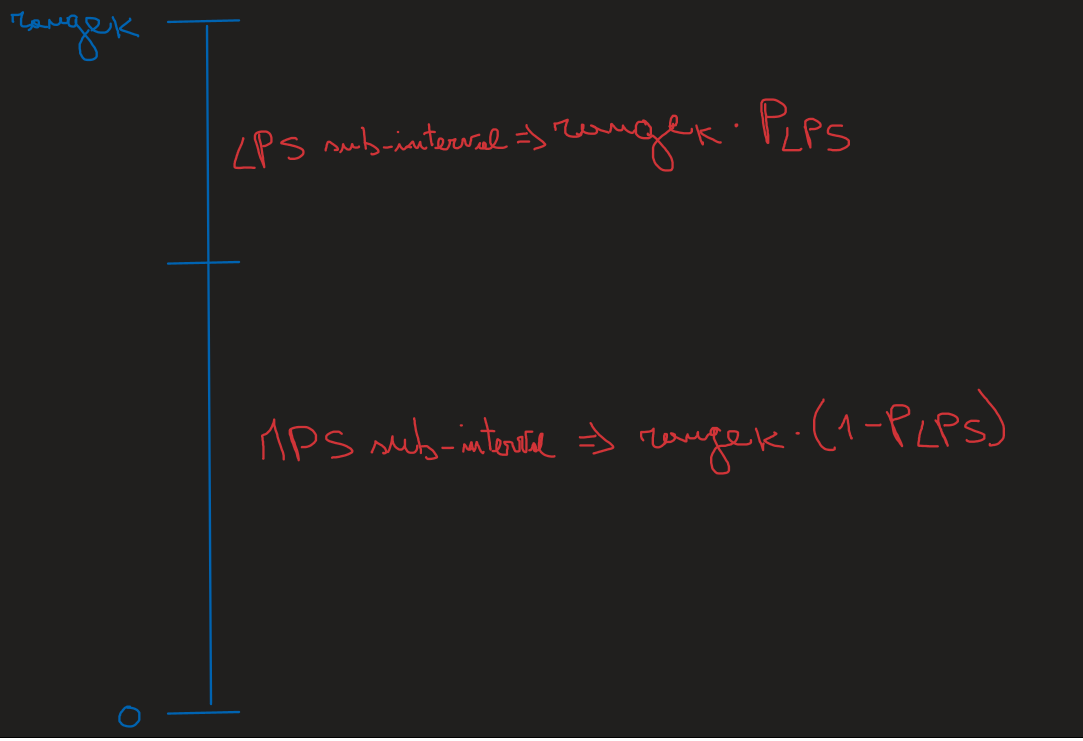 rangeK
LPS sub-interval => rangeK · PLPS
MPS sub-interval => rangeK · (1-PLPS)
0